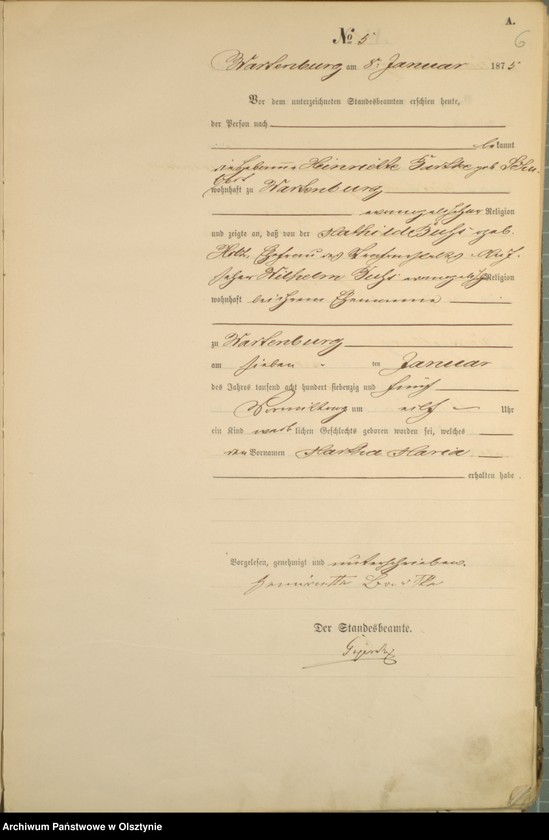 A.
6
No 5
Wartenburg am 8. Januar 1875
Vor dem unterzeichneten Standesbeamten erschien heute,
der Person nach
bekannt
die Hebamme Hinriette geb. Schu-
bert
wohnhaft zu Wartenburg
evangelischer Religion
und zeigte an, daß von der Mathilde geb.
Ehefrau des Auf-
seher Wilhelm evangelisch Religion
wohnhaft bei ihrem Ehemanne
zu Wartenburg
am sieben ten Januar
des Jahres tausend acht hundert siebenzig und fünf
Vormittag um eilf Uhr
ein Kind weiblichen Geschlechts geboren worden sei, welches
den Vornamen Martha Maria
erhalten habe.
Vorgelesen, genehmigt und unterschrieben.
Der Standesbeamte.
Archiwum Państwowe w Olsztynie